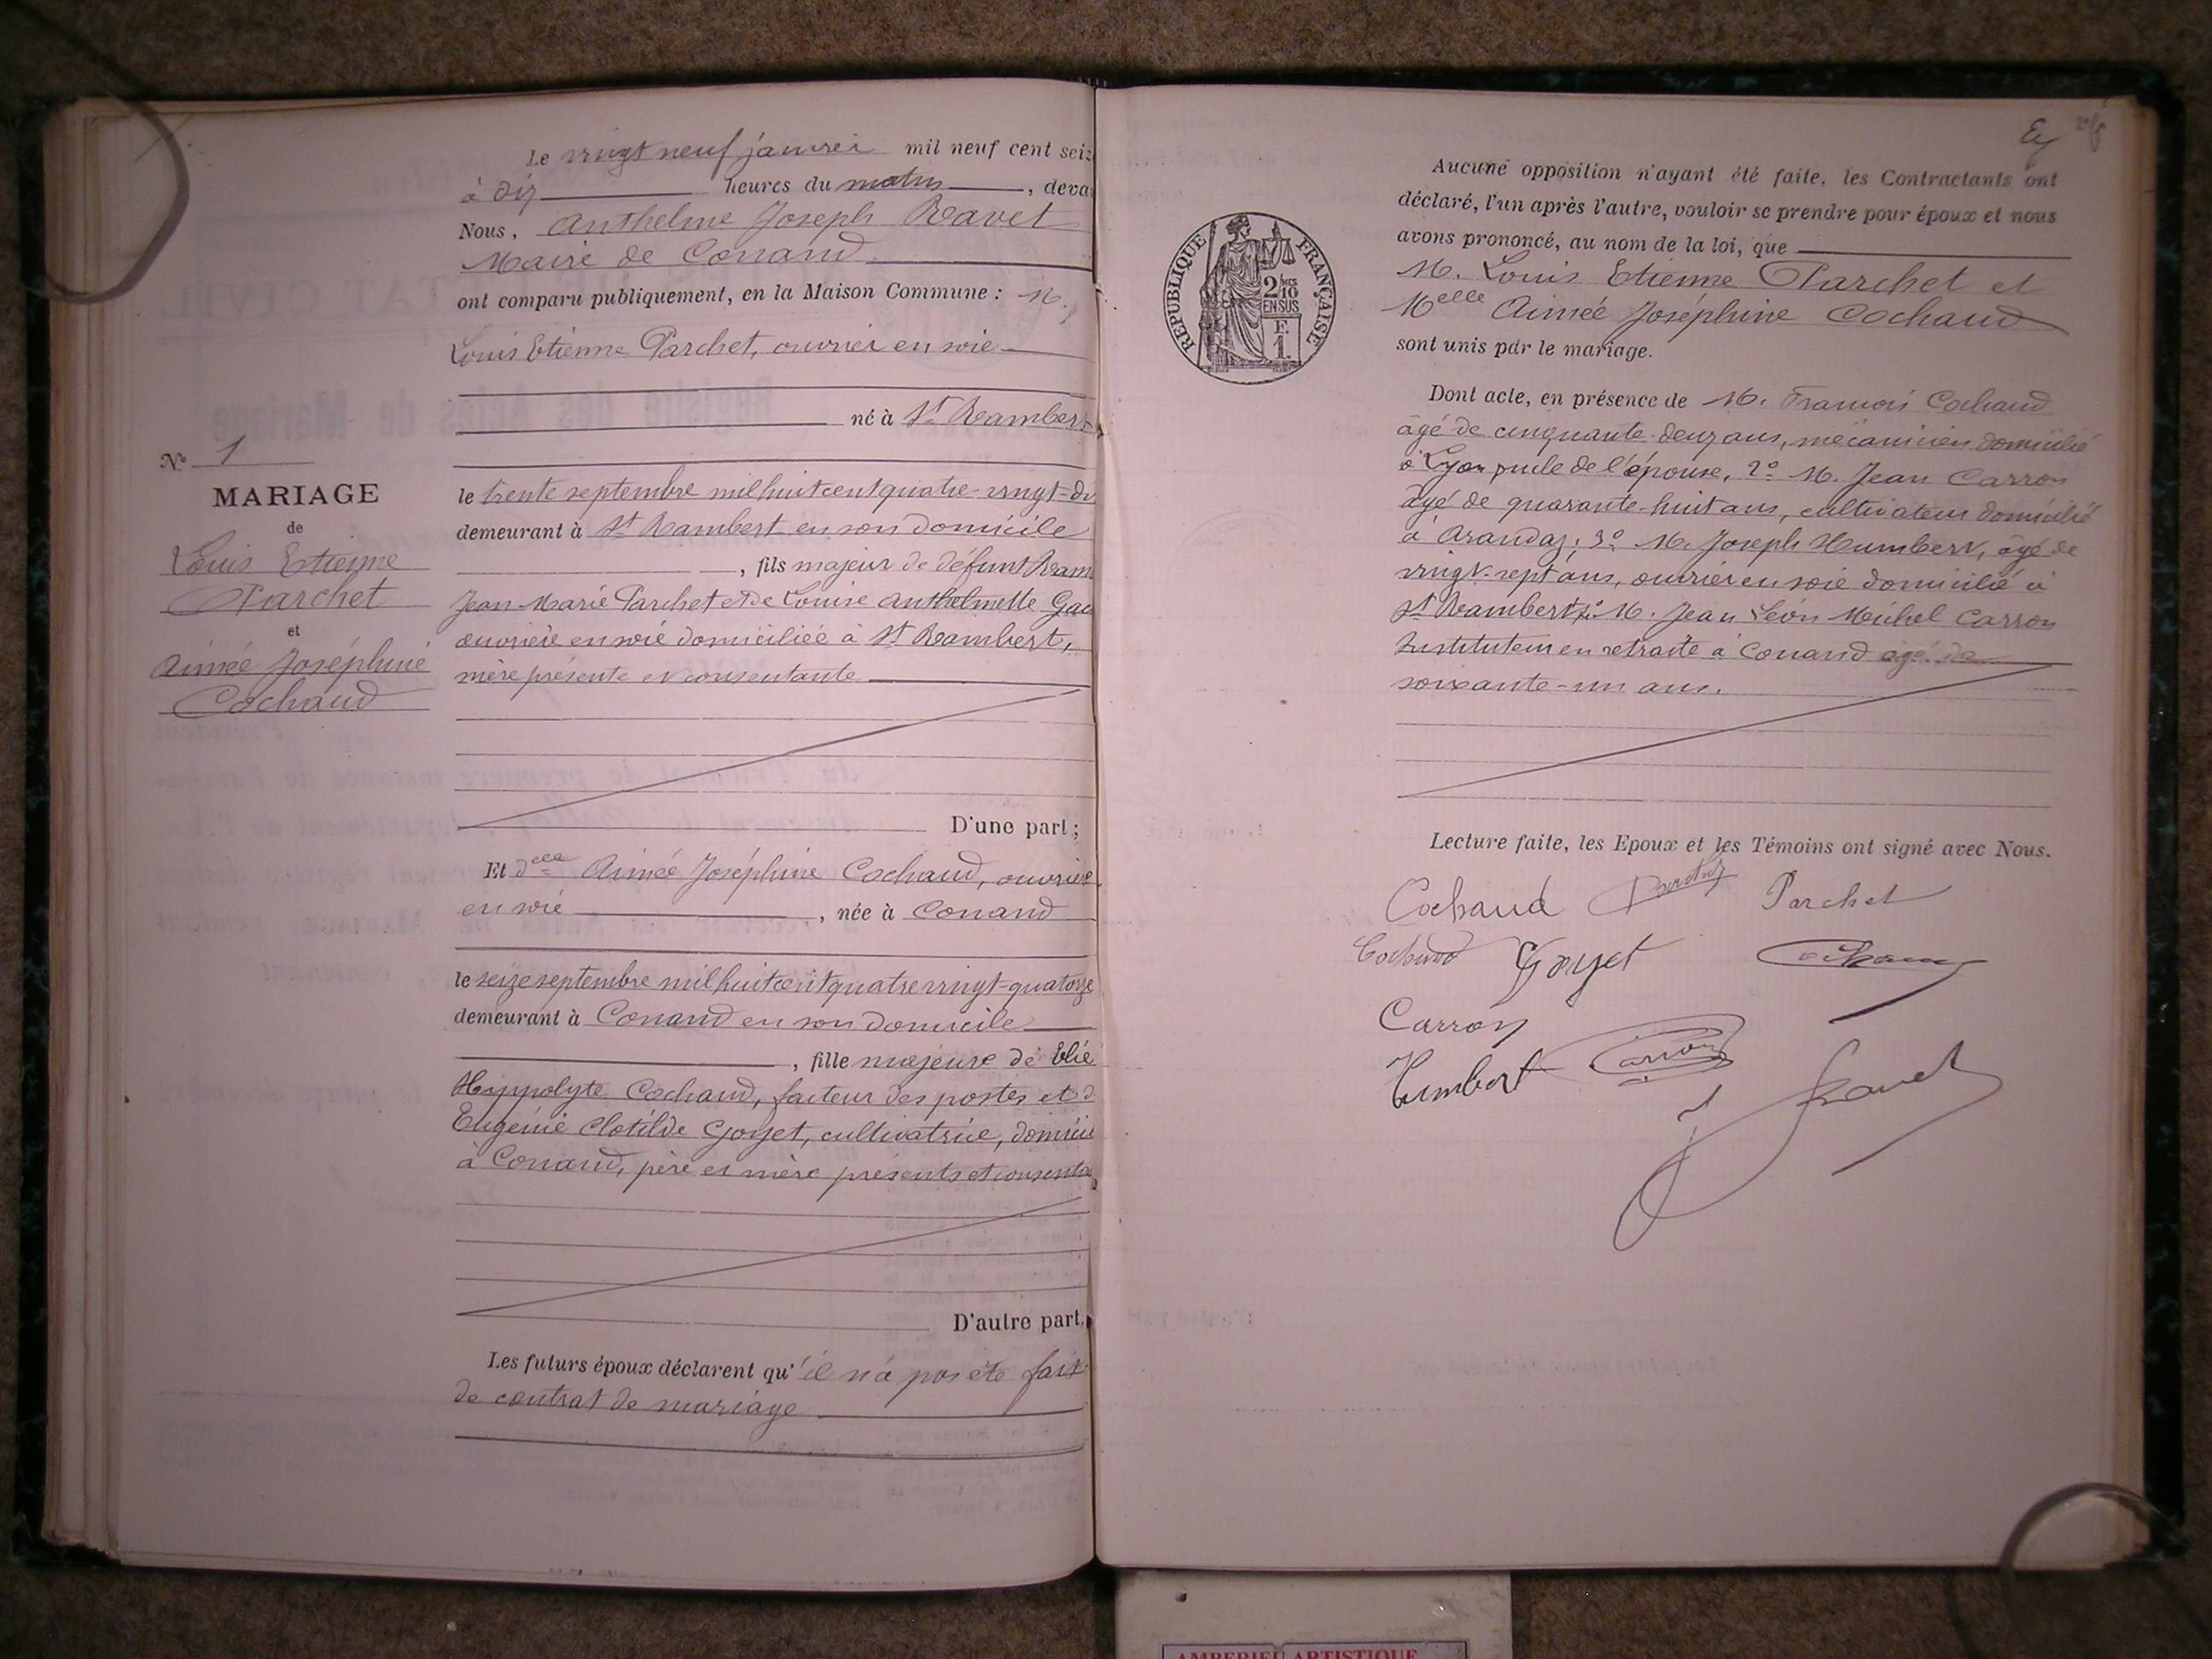 Le vingt neuf janvier mil neuf cent seiz
à dix heures du matin, deva
Nous, Anthelme Joseph Ravet
Maire de Conand
ont comparu publiquement, en la Maison Commune : M.
Louis Etienne Parchet, ouvrier en soie
né à St Rambert
le trente septembre mil huit cent quatre-vingt-di
demeurant à St Rambert en son domicile
, fils majeur de défunt
Jean-Marie Parchet et de Louise Anthelmette
ouvrière en soie domiciliée à St Rambert,
mère présente et consentante
D'une part ;
Et delle Aimée Joséphine Cochaud, ouvrière
en soie, née à Conand
le seize septembre mil huit cent quatre vingt-quatorze
demeurant à Conand en son domicile
, fille majeure de Elie
Hippolyte Cochaud, facteur des postes et d
Eugénie Clotilde Goyet, cultivatrice, domicili
à Conand, père et mère présents et consenta
D'autre part,
Les futurs époux déclarent qu'il n'a pas été fait
de contrat de mariage
No 1
MARIAGE
de
Louis Etienne
Parchet
et
Aimée Joséphine
Cochaud
RÉPUBLIQUE FRANÇAISE
2 MES
10
EN SUS
F.
1.
Aucune opposition n'ayant été faite, les Contractants ont
déclaré, l'un après l'autre, vouloir se prendre pour époux et nous
avons prononcé, au nom de la loi, que
M. Louis Etienne Parchet et
Melle Aimée Joséphine Cochaud
sont unis par le mariage.
Dont acte, en présence de M. François Cochaud
âgé de cinquante-deux ans, mécanicien domicilié
à Lyon oncle de l'épouse, 2° M. Jean Carron
âgé de quarante-huit ans, cultivateur domicilié
à Arandas; 3° M. Joseph Humbert, âgé de
vingt-sept ans, ouvrier en soie domicilié à
St Rambert; 4° M. Jean Léon Michel Carron
Instituteur en retraite à Conand âgé de
soixante-un ans.
Lecture faite, les Epoux et les Témoins ont signé avec Nous.
Cochaud Parchet
Cochaud Goyet Cochaud
Carron
Humbert Carron
J Ravet
AMBERIEU ARTISTIQUE